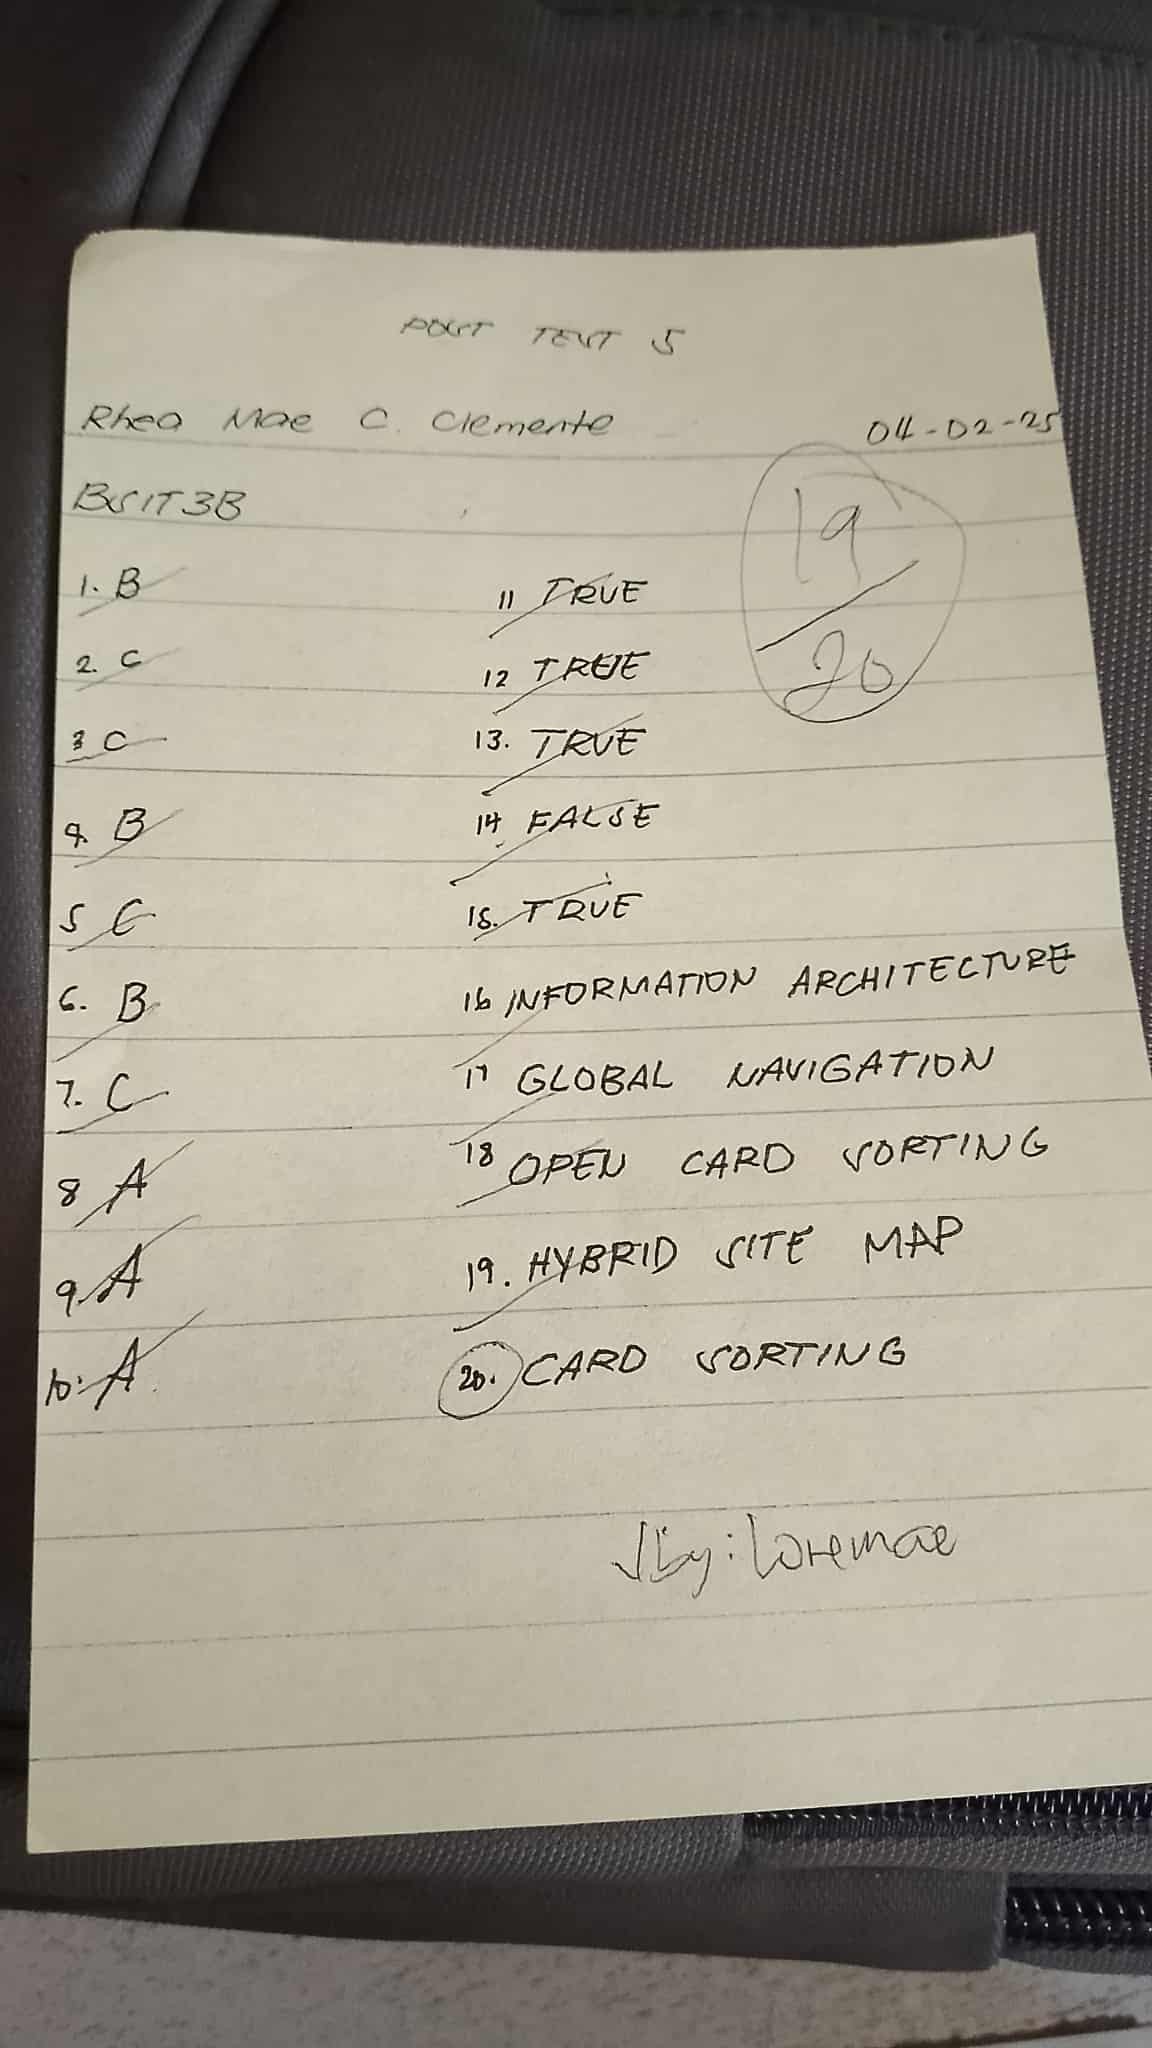 POST TEST 5
Rhea Mae C. Clemente 04-02-25
BSIT3B
19/20
1. B
2. C
3 C
4. B
5 C
6. B
7. C
8 A
9. A
10. A
11 TRUE
12 TRUE
13. TRUE
14. FALSE
15. TRUE
16 INFORMATION ARCHITECTURE
17 GLOBAL NAVIGATION
18 OPEN CARD SORTING
19. HYBRID SITE MAP
20. CARD SORTING
√by: Loremae